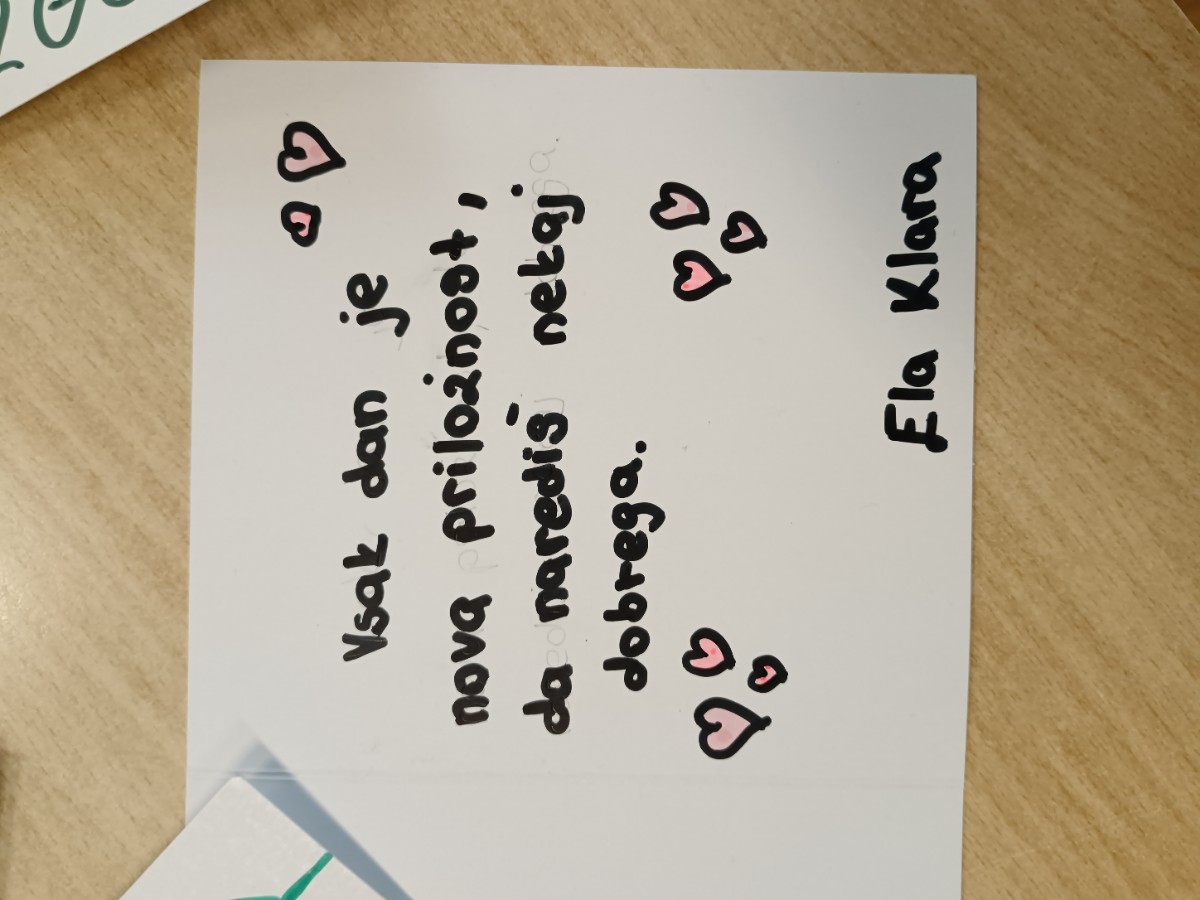 Vsak dan je
nova priložnost,
da narediš nekaj
dobrega.
Ela Klara